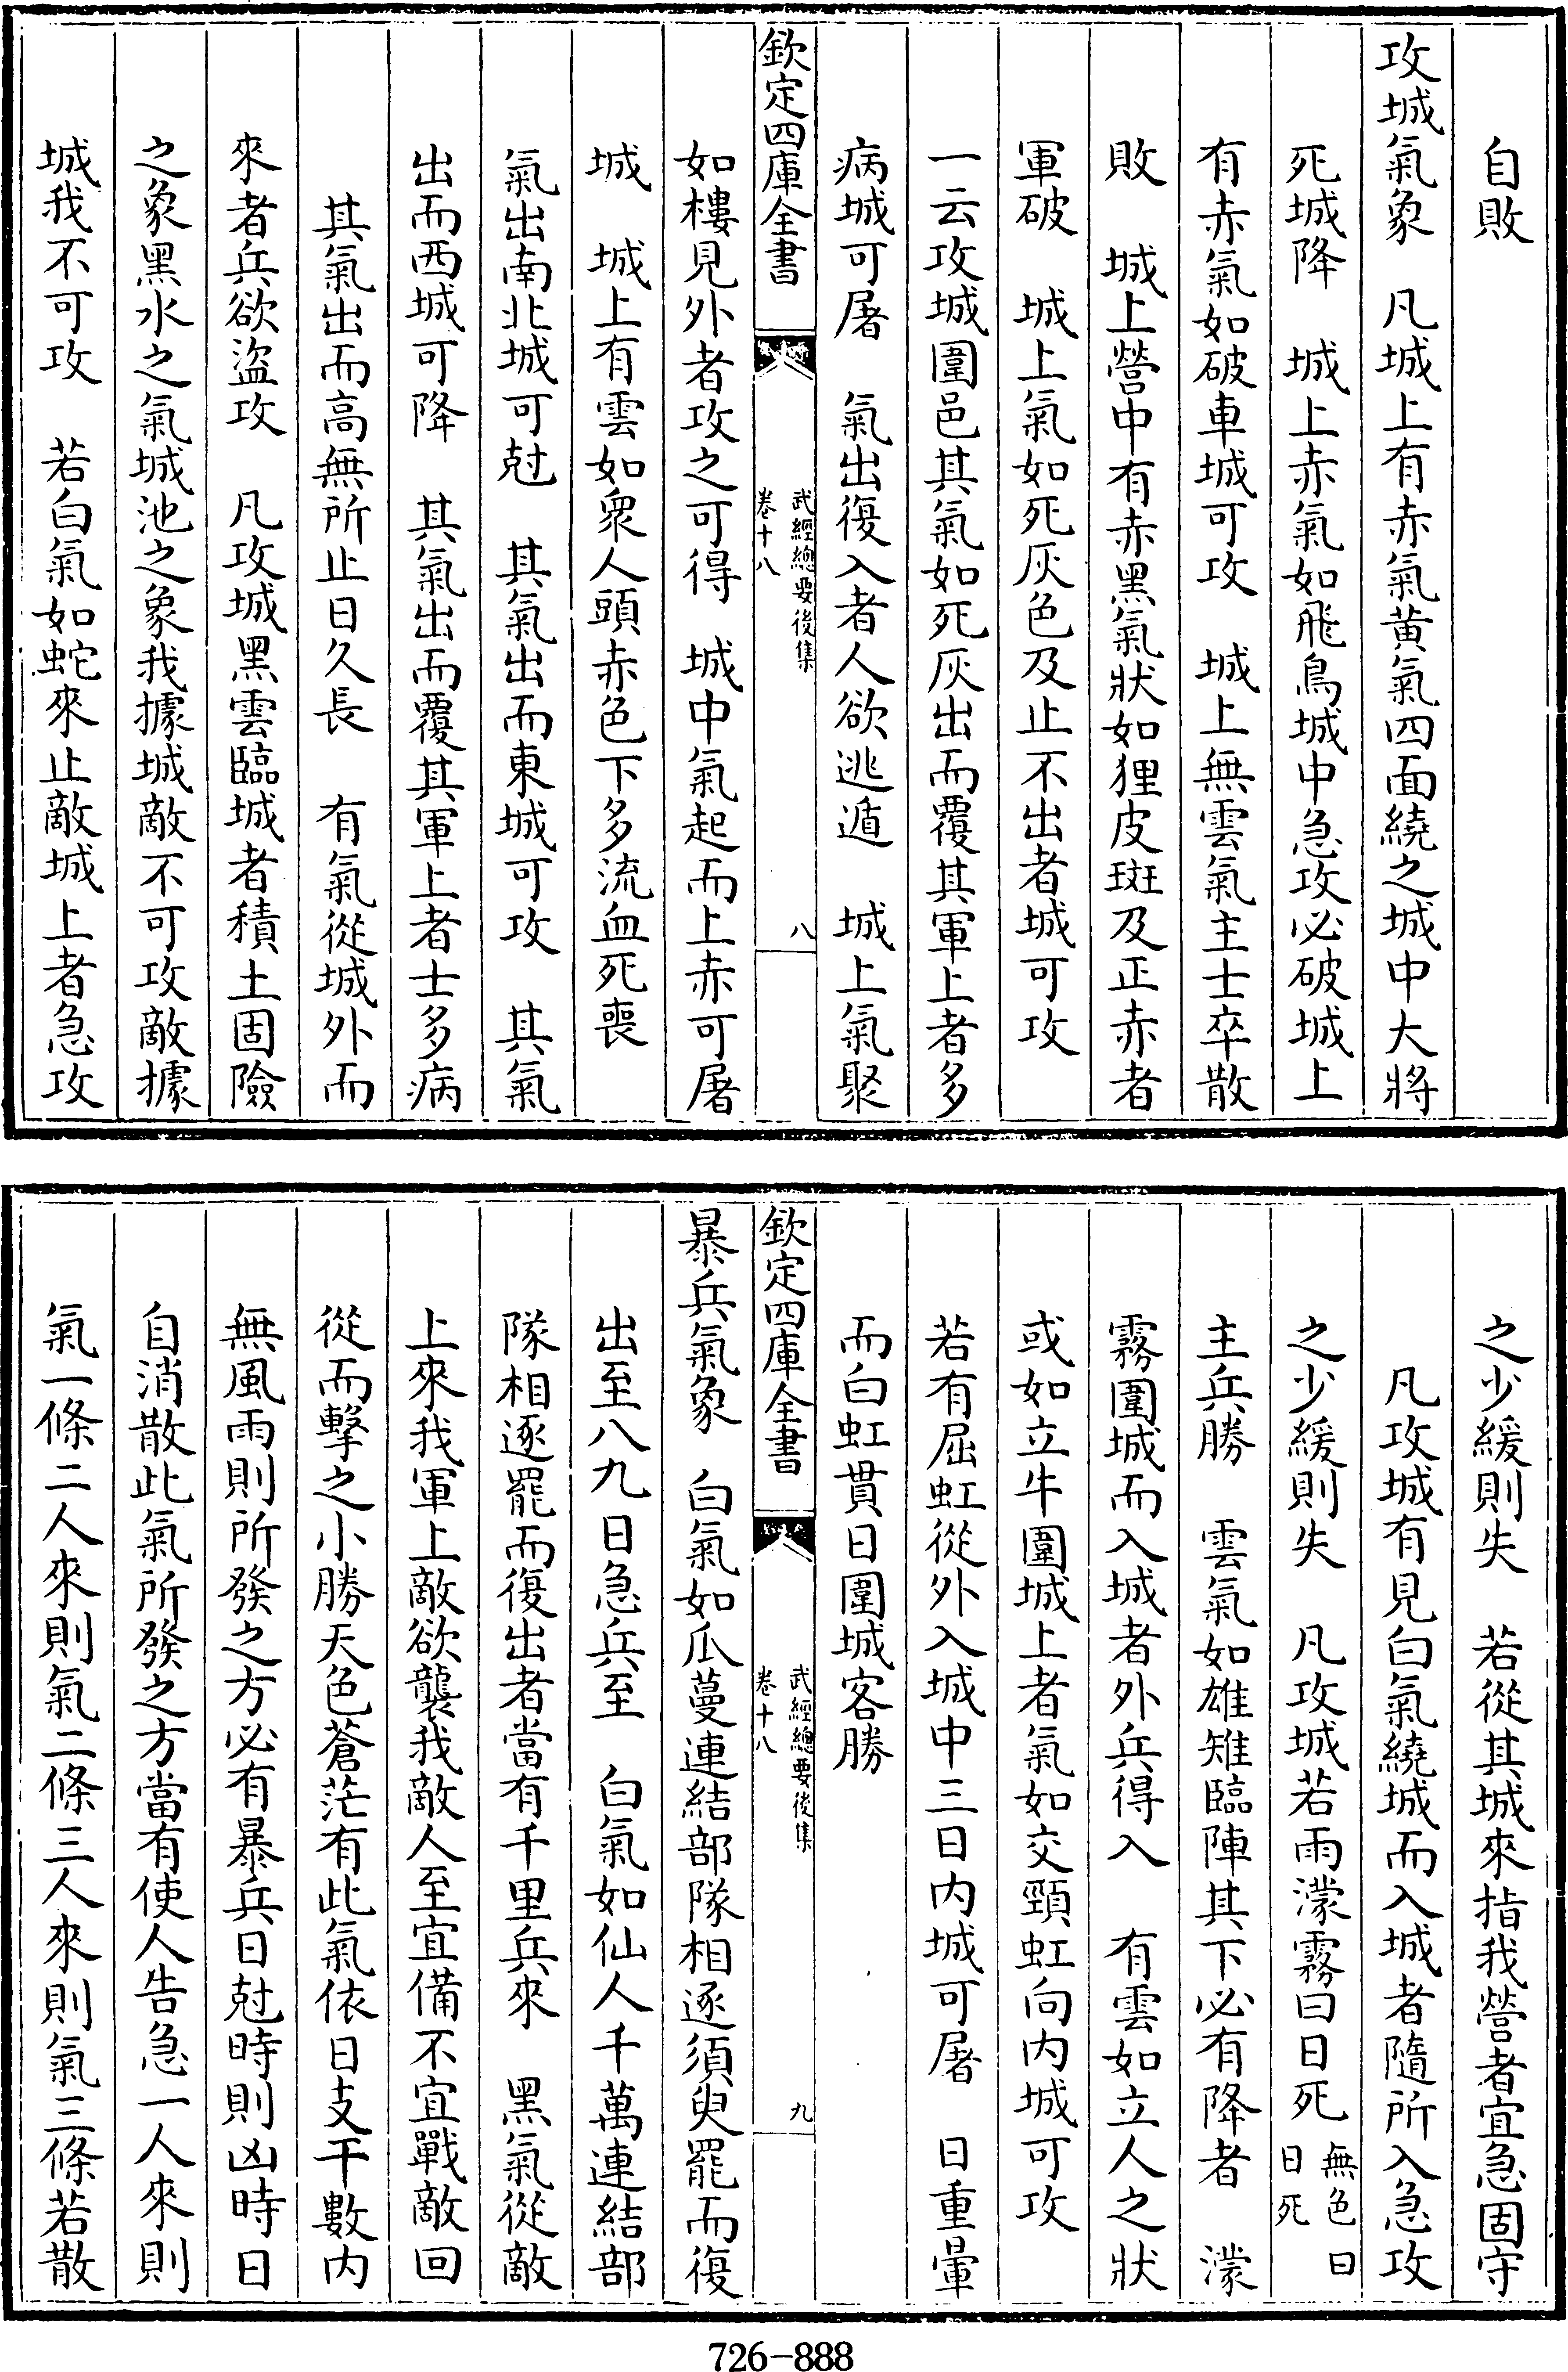 自敗
攻城氣象　凡城上有赤氣黄氣四面繞之城中大將
死城降　城上赤氣如飛鳥城中急攻必破城上
有赤氣如破車城可攻　城上無雲氣主士卒散
敗　城上營中有赤黑氣狀如狸皮斑及正赤者
軍破　城上氣如死灰色及止不出者城可攻
一云攻城圍邑其氣如死灰出而覆其軍上者多
病城可屠　氣出復入者人欲逃遁　城上氣聚
欽定四庫全書
武經總要後集
卷十八
八
如樓見外者攻之可得　城中氣起而上赤可屠
城　城上有雲如衆人頭赤色下多流血死喪
氣出南北城可尅　其氣出而東城可攻　其氣
出而西城可降　其氣出而覆其軍上者士多病
其氣出而高無所止日久長　有氣從城外而
來者兵欲盜攻　凡攻城黑雲臨城者積土固險
之象黑水之氣城池之象我據城敵不可攻敵據
城我不可攻　若白氣如蛇來止敵城上者急攻
之少緩則失　若從其城來指我營者宜急固守
凡攻城有見白氣繞城而入城者隨所入急攻
之少緩則失　凡攻城若雨濛霧曰日死無色曰
日死
主兵勝　雲氣如雄雉臨陣其下必有降者　濛
霧圍城而入城者外兵得入　有雲如立人之狀
或如立牛圍城上者氣如交頸虹向内城可攻
若有屈虹從外入城中三日内城可屠　日重暈
而白虹貫日圍城客勝
欽定四庫全書
武經總要後集
卷十八
九
暴兵氣象　白氣如瓜蔓連結部隊相逐須臾罷而復
出至八九日急兵至　白氣如仙人千萬連結部
隊相逐罷而復出者當有千里兵來　黑氣從敵
上來我軍上敵欲襲我敵人至宜備不宜戰敵回
從而擊之小勝天色蒼茫有此氣依日支干數内
無風雨則所發之方必有暴兵日尅時則凶時日
自消散此氣所發之方當有使人告急一人來則
氣一條二人來則氣二條三人來則氣三條若散
726-888